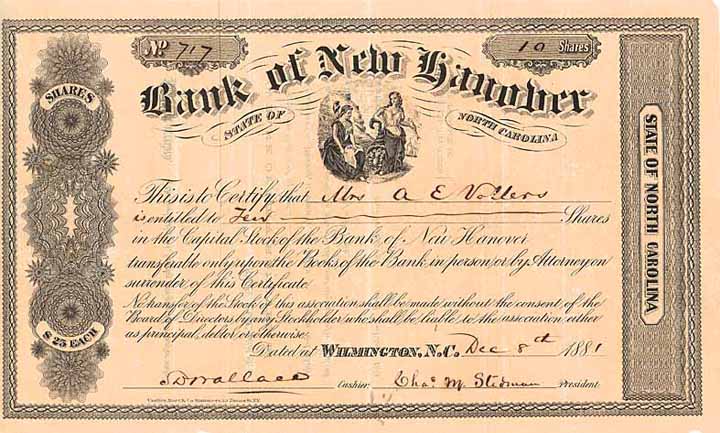 No. 717
10 Shares
Bank of New Hanover
STATE OF NORTH CAROLINA
SHARES
$25 EACH
STATE OF NORTH CAROLINA
This is to Certify that Mrs A E Vollers
is entitled to Ten Shares
in the Capital Stock of the Bank of New Hanover
transferable only upon the Books of the Bank in person or by Attorney on
surrender of this Certificate
No transfer of the Stock of this association shall be made without the consent of the
Board of Directors by any Stockholder who shall be liable to the association either
as principal, debtor or otherwise.
Dated at WILMINGTON, N.C. Dec 8th 1881
S D Wallace Cashier. Chas. M. Stedman President.